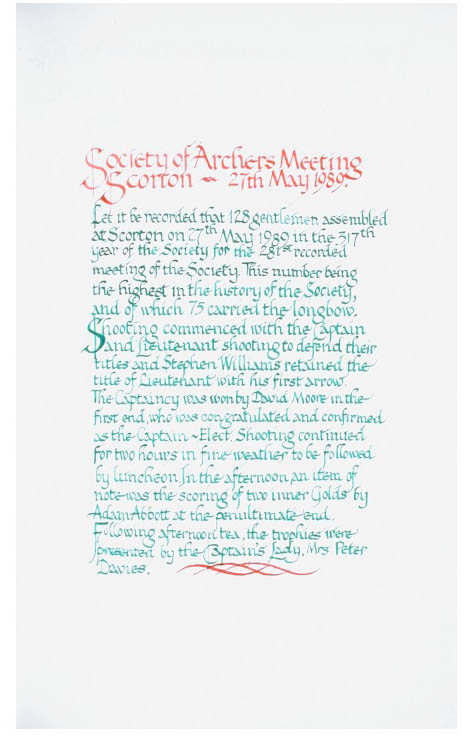 Society of Archers Meeting
Scorton ~ 27th May 1989.
Let it be recorded that 128 gentlemen assembled
at Scorton on 27th May 1989 in the 317th
year of the Society for the 281st recorded
meeting of the Society. This number being
the highest in the history of the Society,
and of which 75 carried the longbow.
Shooting commenced with the Captain
and Lieutenant shooting to defend their
titles and Stephen Williams retained the
title of Lieutenant with his first arrow.
The Captaincy was won by David Moore in the
first end, who was congratulated and confirmed
as the Captain ~ Elect. Shooting continued
for two hours in fine weather to be followed
by luncheon. In the afternoon, an item of
note was the scoring of two inner Golds by
Adam Abbott at the penultimate end.
Following afternoon tea, the trophies were
presented by the Captain's Lady, Mrs Peter
Davies.